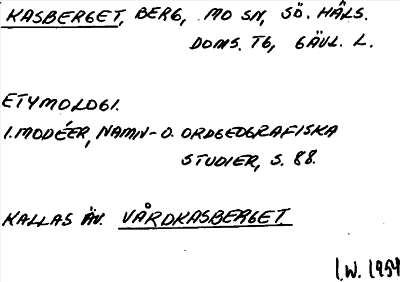 KASBERGET, BERG, MO SN, SÖ. HÄLS.
DOMS. TG, GÄVL. L.
ETYMOLOGI.
I. MODÉER, NAMN- O. ORDGEOGRAFISKA
STUDIER, S. 88.
KALLAS ÄV. VÅRDKASBERGET.
I.W. 1959